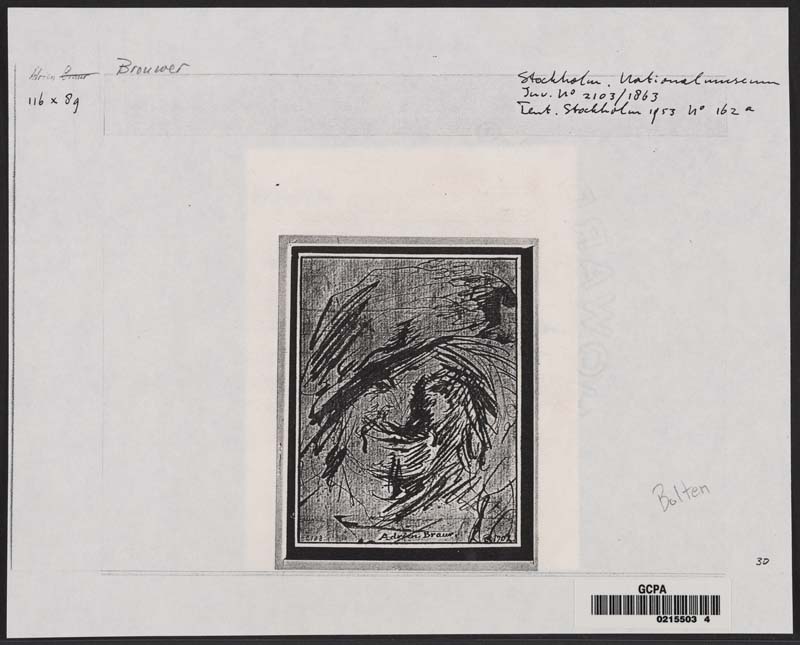 Brouwer
116 x 89
Stockholm. Nationalmuseum
Inv. No 2103/1863
Tent. Stockholm 1953 No 162a
2103
Adrien Braur
Bolten
30
GCPA
0215503 4